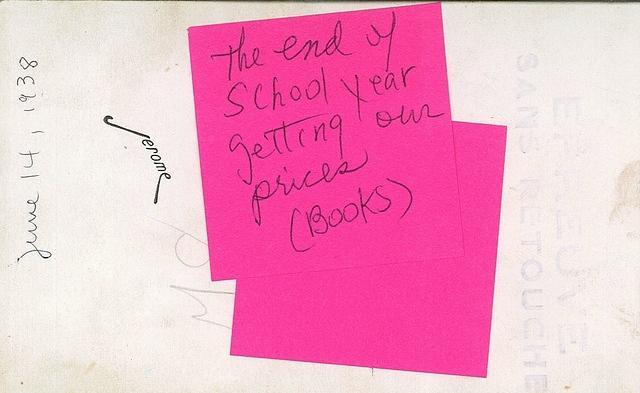 The end of
School year
getting our
prices
(Books)
June 14, 1938
Jerome
EPREUVE
SANS RETOUCHE